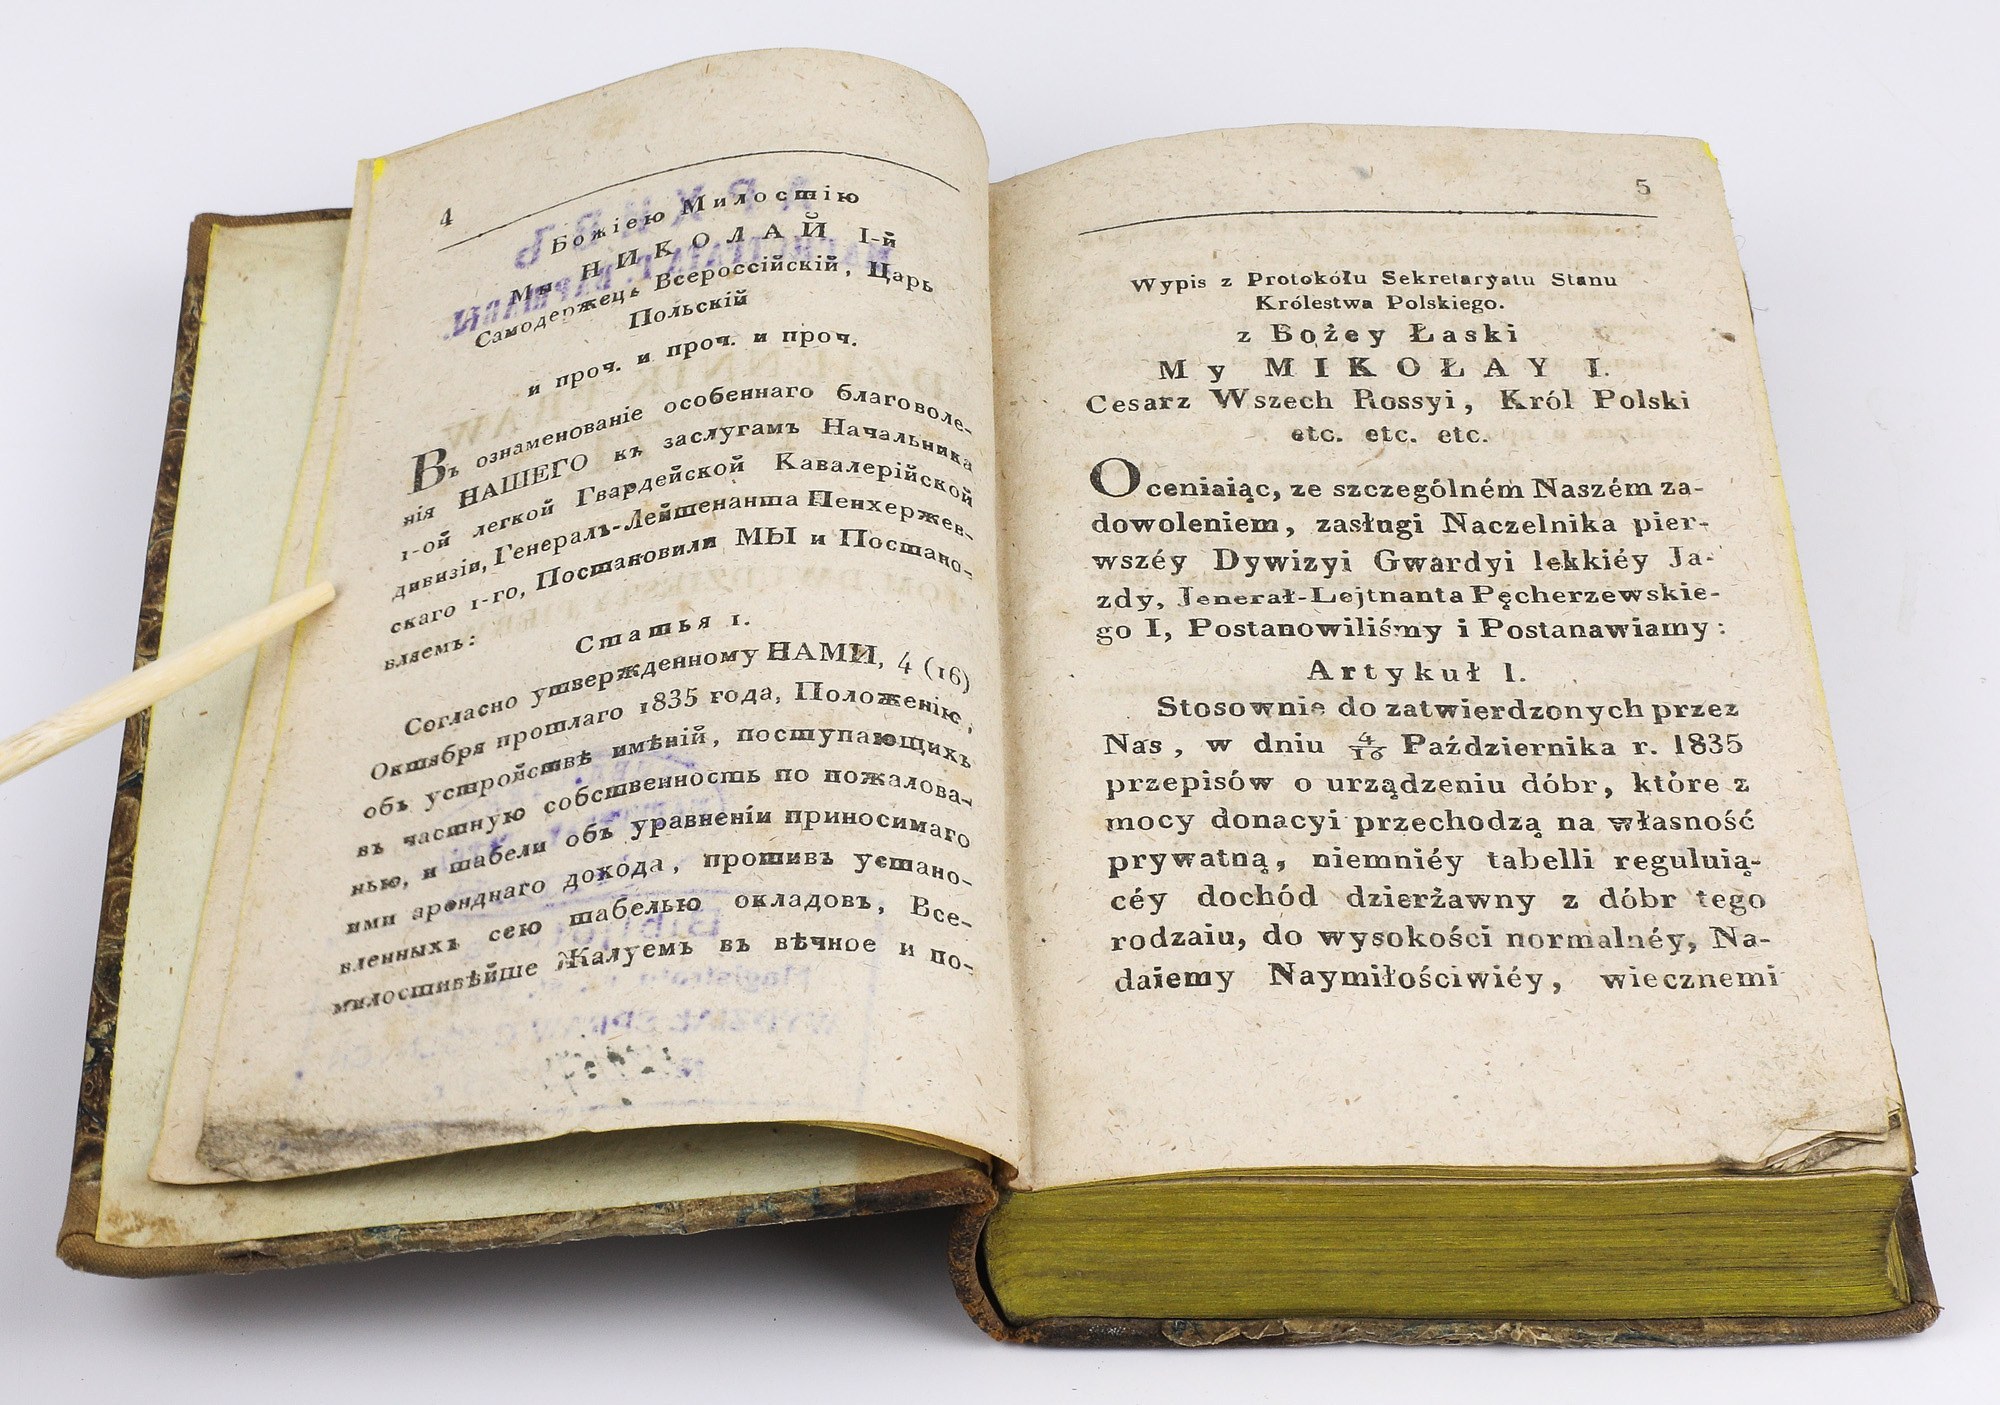 4
Божіею Милостію
Мы НИКОЛАЙ I-й
Самодержець Всероссійскій, Царь
Польскій
и проч. и проч. и проч.
Въ ознаменованіе особеннаго благоволе-
нія НАШЕГО къ заслугамъ Начальника
1-ой легкой Гвардейской Кавалерійской
дивизіи, Генералъ-Лейтенанта Пенхержев-
скаго 1-го, Постановили МЫ и Постано-
вляемъ:
Статья 1.
Согласно утвержденному НАМИ, 4 (16)
Октября прошлаго 1835 года, Положенію,
объ устройствѣ имѣній, поступающихъ
въ частную собственность по пожалова-
нью, и табели объ уравненіи приносимаго
ими аренднаго дохода, противъ устано-
вленныхъ сею табелью окладовъ, Все-
милостивѣйше Жалуемъ въ вѣчное и по-
5
Wypis z Protokółu Sekretaryatu Stanu
Królestwa Polskiego.
z Bożey Łaski
My MIKOŁAY I.
Cesarz Wszech Rossyi, Król Polski
etc. etc. etc.
Oceniaiąc, ze szczególném Naszém za-
dowoleniem, zasługi Naczelnika pier-
wszéy Dywizyi Gwardyi lekkiéy Ja-
zdy, Jenerał-Lejtnanta Pęcherzewskie-
go I, Postanowiliśmy i Postanawiamy:
Artykuł I.
Stosownie do zatwierdzonych przez
Nas, w dniu 4/16 Października r. 1835
przepisów o urządzeniu dóbr, które z
mocy donacyi przechodzą na własność
prywatną, niemniéy tabelli reguluią-
céy dochód dzierżawny z dóbr tego
rodzaiu, do wysokości normalnéy, Na-
daiemy Naymiłościwiéy, wiecznemi